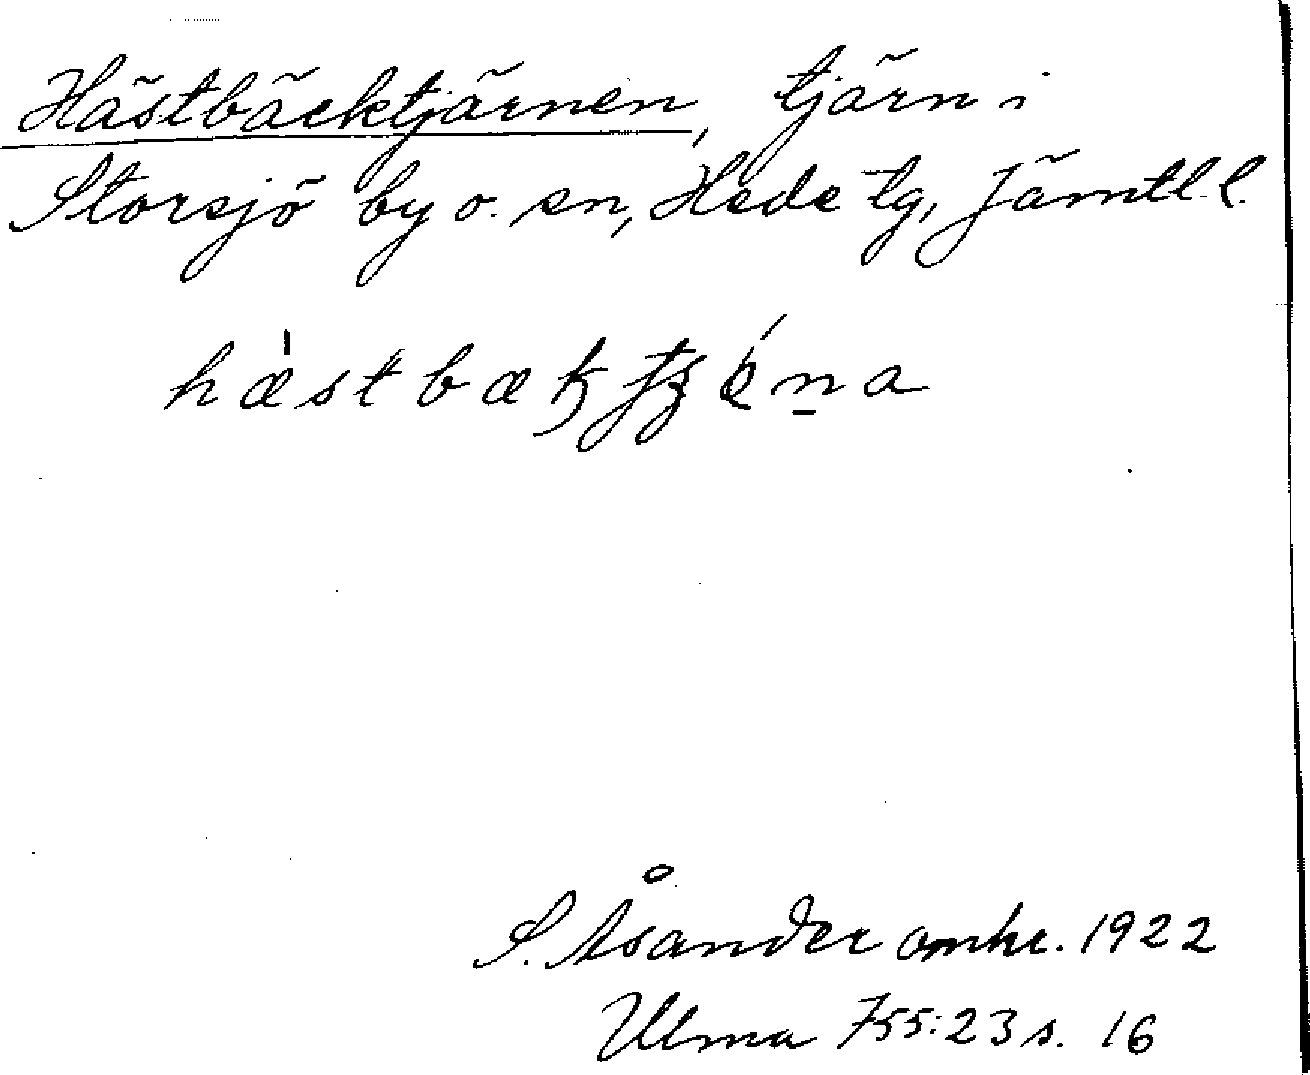 Hästbäcktjärnen, tjärn i
Storsjö by o. sn, Hede tg, Jämtl. l.
S. Åsander omkr. 1922
Ulma 755:23 s. 16